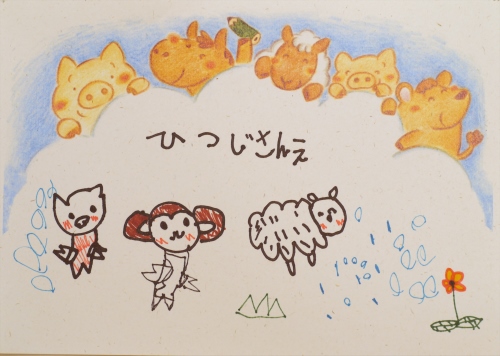 ひつじさんえ